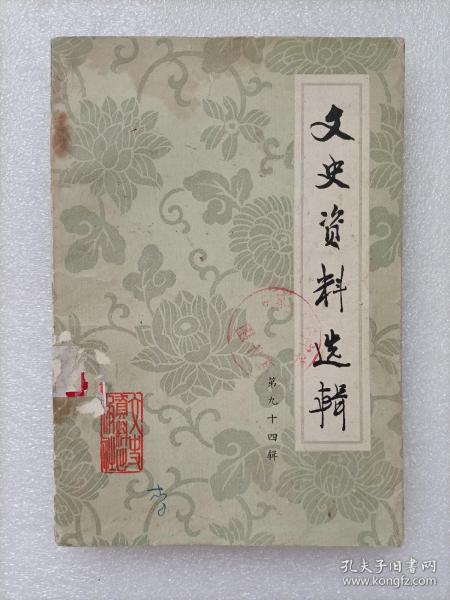 文史资料选辑
第九十四辑
孔夫子旧书网
www.kongfz.com